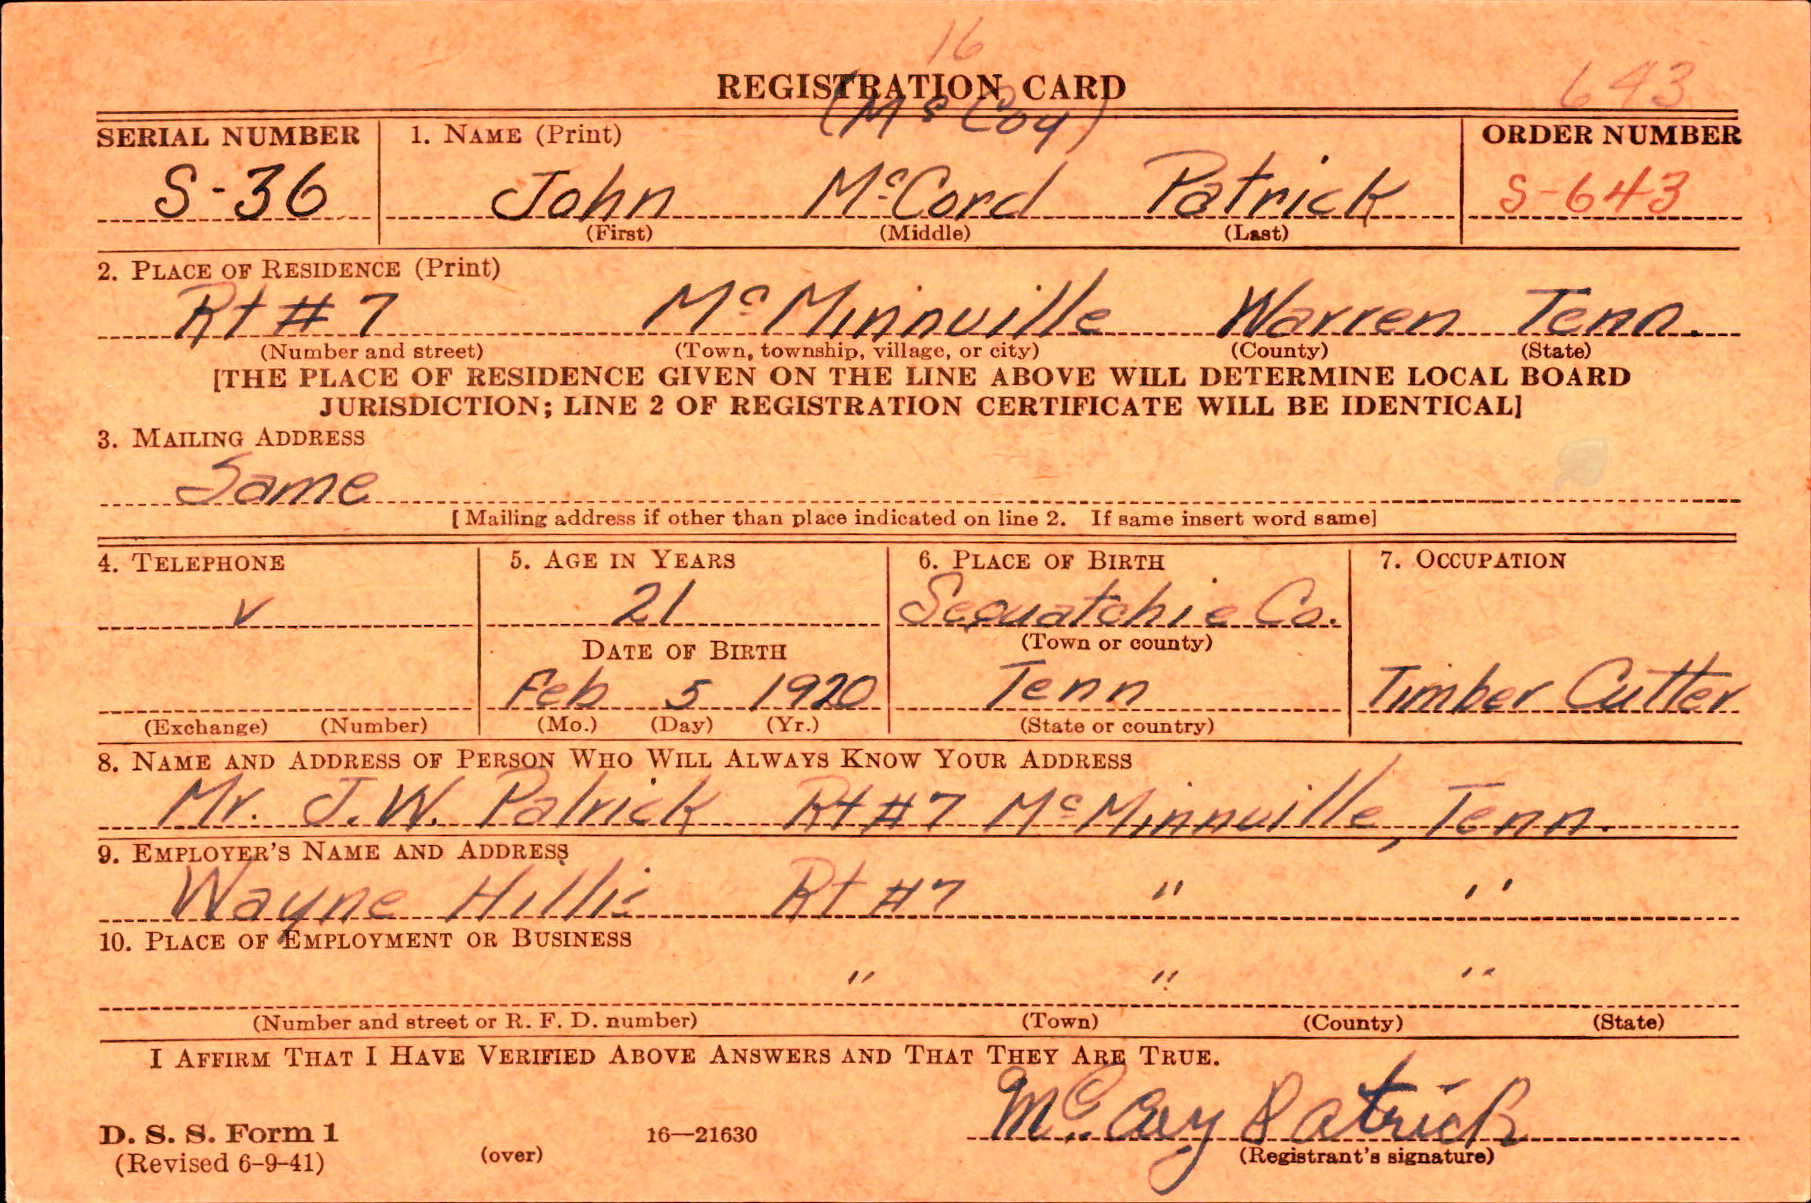 16
REGISTRATION CARD 643
(McCoy)
SERIAL NUMBER 1. NAME (Print) ORDER NUMBER
S-36 John McCord Patrick S-643
(First) (Middle) (Last)
2. PLACE OF RESIDENCE (Print)
Rt # 7 McMinnville Warren Tenn.
(Number and street) (Town, township, village, or city) (County) (State)
[THE PLACE OF RESIDENCE GIVEN ON THE LINE ABOVE WILL DETERMINE LOCAL BOARD
JURISDICTION; LINE 2 OF REGISTRATION CERTIFICATE WILL BE IDENTICAL]
3. MAILING ADDRESS
Same
[Mailing address if other than place indicated on line 2. If same insert word same]
4. TELEPHONE 5. AGE IN YEARS 6. PLACE OF BIRTH 7. OCCUPATION
v 21 Sequatchie Co.
DATE OF BIRTH (Town or county)
Feb 5 1920 Tenn Timber Cutter
(Exchange) (Number) (Mo.) (Day) (Yr.) (State or country)
8. NAME AND ADDRESS OF PERSON WHO WILL ALWAYS KNOW YOUR ADDRESS
Mr. J.W. Patrick Rt #7 McMinnville, Tenn.
9. EMPLOYER'S NAME AND ADDRESS
Wayne Hillis Rt #7 " "
10. PLACE OF EMPLOYMENT OR BUSINESS
" " "
(Number and street or R. F. D. number) (Town) (County) (State)
I AFFIRM THAT I HAVE VERIFIED ABOVE ANSWERS AND THAT THEY ARE TRUE.
McCoy Patrick
D. S. S. Form 1 16—21630
(Revised 6-9-41) (over) (Registrant's signature)